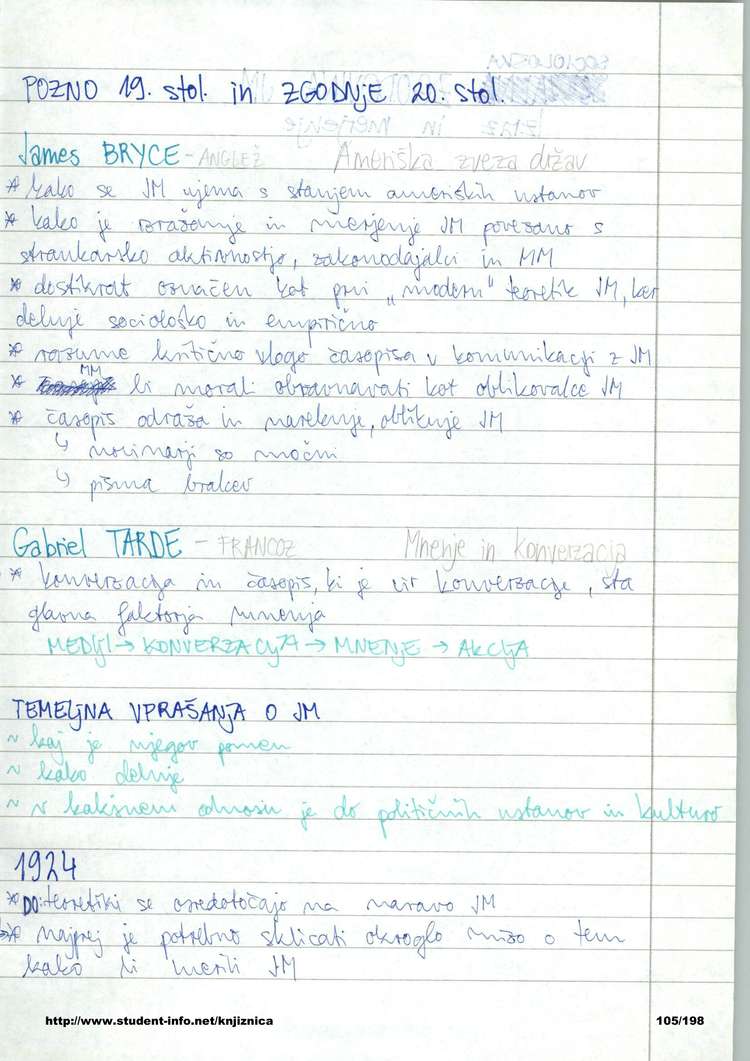 POZNO 19. stol. in ZGODNJE 20. stol.
James BRYCE - ANGLEŽ Ameriška zveza držav
* kako se JM ujema s stanjem ameriških ustanov
* kako je izražanje in merjenje JM povezano s
strankarsko aktivnostjo, zakonodajalci in MM
* dostikrat označen kot prvi "modern" teoretik JM, ker
deluje sociološko in empirično
* razume kritično vlogo časopisa v komunikaciji z JM
* MM bi morali obravnavati kot oblikovalce JM
* časopis odraža in narekuje, oblikuje JM
↳ novinarji so močni
↳ pisma bralcev
Gabriel TARDE - FRANCOZ Mnenje in konverzacija
* konverzacija in časopis, ki je vir konverzacije, sta
glavna faktorja mnenja
MEDIJI → KONVERZACIJA → MNENJE → AKCIJA
TEMELJNA VPRAŠANJA O JM
~ kaj je njegov pomen
~ kako deluje
~ v kakšnem odnosu je do političnih ustanov in kulturo
1924
* DO: teoretiki se osredotočajo na naravo JM
* najprej je potrebno sklicati okroglo mizo o tem
kako bi merili JM
http://www.student-info.net/knjiznica 105/198